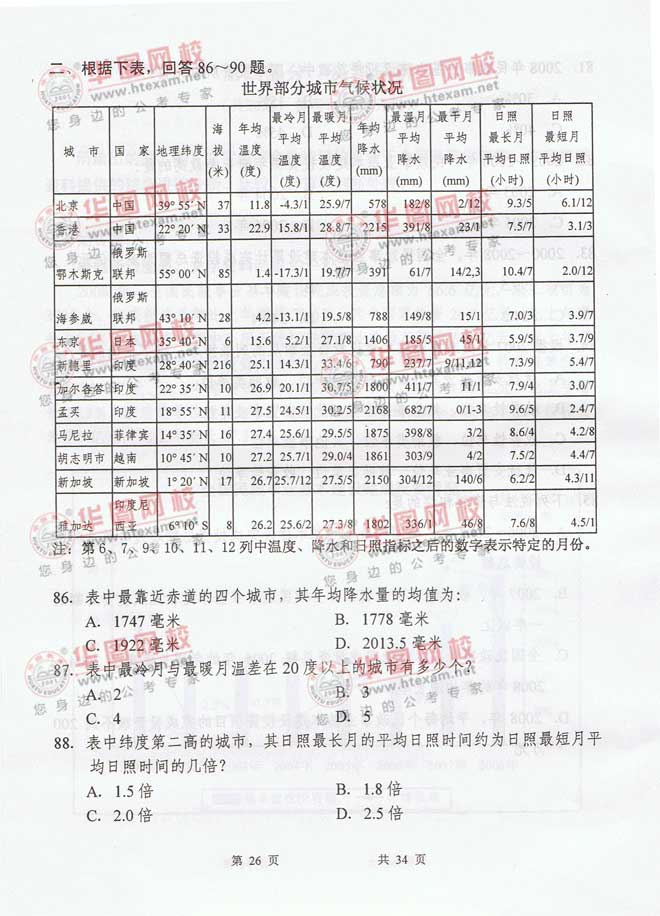 二、根据下表，回答 86～90 题。
世界部分城市气候状况
城 市 国 家 地理纬度 海拔(米) 年均温度(度) 最冷月平均温度(度) 最暖月平均温度(度) 年均降水(mm) 最湿月平均降水(mm) 最干月平均降水(mm) 日照最长月平均日照(小时) 日照最短月平均日照(小时)
北京 中国 39° 55′ N 37 11.8 -4.3/1 25.9/7 578 182/8 2/12 9.3/5 6.1/12
香港 中国 22° 20′ N 33 22.9 15.8/1 28.8/7 2215 391/8 23/1 7.5/7 3.1/3
鄂木斯克 俄罗斯联邦 55° 00′ N 85 1.4 -17.3/1 19.7/7 391 61/7 14/2,3 10.4/7 2.0/12
海参崴 俄罗斯联邦 43° 10′ N 28 4.2 -13.1/1 19.5/8 788 149/8 15/1 7.0/3 3.9/7
东京 日本 35° 40′ N 6 15.6 5.2/1 27.1/8 1406 185/5 45/1 5.9/5 3.7/9
新德里 印度 28° 40′ N 216 25.1 14.3/1 33.4/6 790 237/7 9/11,12 7.3/9 5.4/7
加尔各答 印度 22° 35′ N 10 26.9 20.1/1 30.7/5 1800 411/7 11/1 7.9/4 3.0/7
孟买 印度 18° 55′ N 11 27.5 24.5/1 30.2/5 2168 682/7 0/1-3 9.6/5 2.4/7
马尼拉 菲律宾 14° 35′ N 16 27.4 25.6/1 29.5/5 1875 398/8 3/2 8.6/4 4.2/8
胡志明市 越南 10° 45′ N 10 27.2 25.7/1 29.0/4 1861 303/9 4/2 7.5/2 4.4/7
新加坡 新加坡 1° 20′ N 17 26.7 25.7/12 27.5/5 2150 304/12 140/6 6.2/2 4.3/11
雅加达 印度尼西亚 6° 10′ S 8 26.2 25.6/2 27.3/8 1802 336/1 46/8 7.6/8 4.5/1
注：第 6、7、9、10、11、12 列中温度、降水和日照指标之后的数字表示特定的月份。
86. 表中最靠近赤道的四个城市，其年均降水量的均值为：
A. 1747 毫米 B. 1778 毫米
C. 1922 毫米 D. 2013.5 毫米
87. 表中最冷月与最暖月温差在 20 度以上的城市有多少个？
A. 2 B. 3
C. 4 D. 5
88. 表中纬度第二高的城市，其日照最长月的平均日照时间约为日照最短月平
均日照时间的几倍？
A. 1.5 倍 B. 1.8 倍
C. 2.0 倍 D. 2.5 倍
第 26 页 共 34 页
华图网校
www.htexam.com
您身边的公考专家